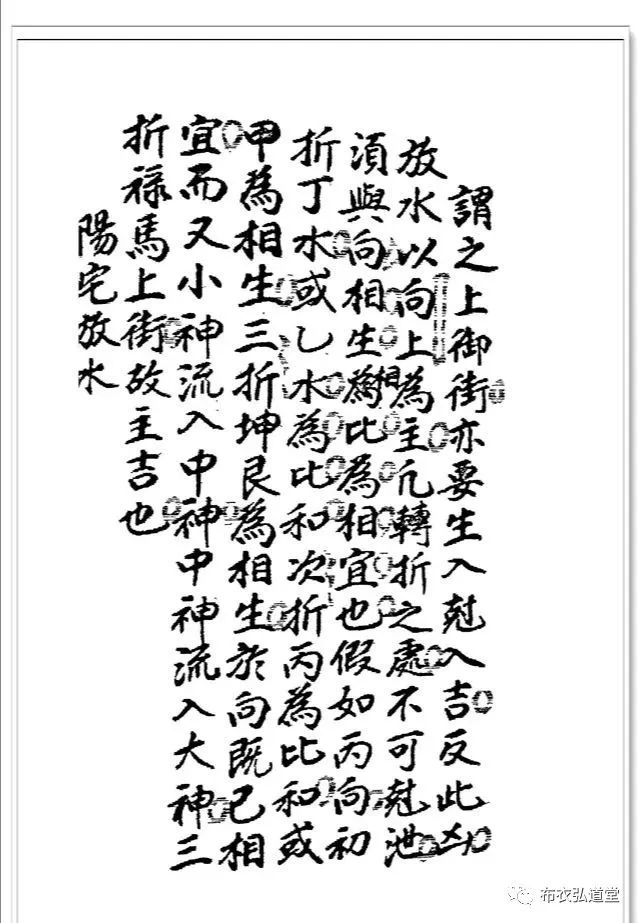 謂之上御街亦要生入尅入吉反此凶
放水以向上為主凡轉折之處不可尅泄
須與向相生為比為相宜也假如丙向初
折丁水或乙水為比和次折丙為比和或
甲為相生三折坤艮為相生於向既已相
宜而又小神流入中神中神流入大神三
折祿馬上街故主吉也
陽宅放水
布衣弘道堂